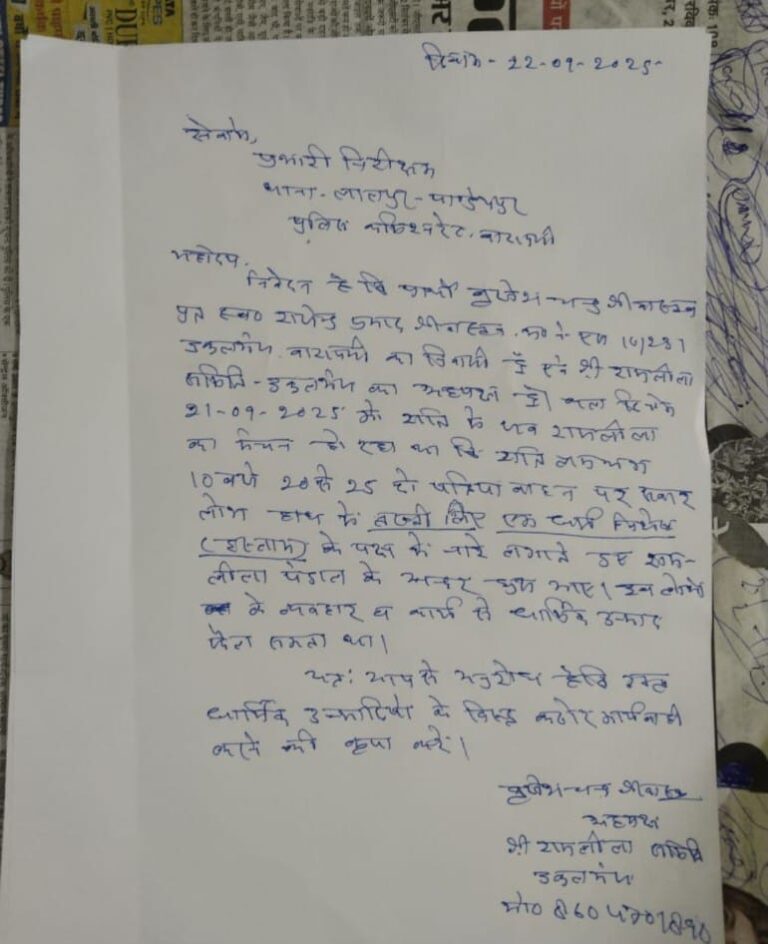 दिनांक - 22-09-2025
सेवामें,
प्रभारी निरीक्षक
थाना - लालपुर - पाण्डेयपुर
पुलिस कमिश्नरेट, वाराणसी
महोदय,
निवेदन है कि प्रार्थी चन्द्र श्रीवास्तव
पुत्र स्व० राजेन्द्र प्रसाद श्रीवास्तव
वाराणसी का निवासी हूँ एवं श्री रामलीला
समिति - का अध्यक्ष हूँ। कल दिनांक
21-09-2025 को रात्रि के रामलीला
का मंचन हो रहा था कि रात्रि लगभग
10 बजे 20 से 25 दो पहिया वाहन पर सवार
लोग हाथ में तख्ती लिए एक धर्म विशेष
(इस्लाम) के पक्ष में नारे लगाते हुए राम-
लीला पंडाल के अन्दर घुस आए। इन लोगों
के व्यवहार व कार्य से धार्मिक उन्माद
फैल सकता था।
अतः आप से अनुरोध है कि उक्त
धार्मिक उन्मादियों के विरुद्ध कठोर कार्यवाही
करने की कृपा करें।
चन्द्र श्रीवास्तव
अध्यक्ष
श्री रामलीला समिति
मो०